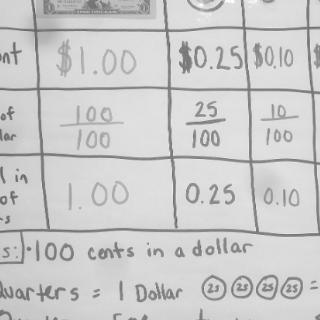 nt $1.00 $0.25 $0.10 $
of 100/100 25/100 10/100
lar
l in 1.00 0.25 0.10
of
s
s: • 100 cents in a dollar
Quarters = 1 Dollar 25 25 25 25 =